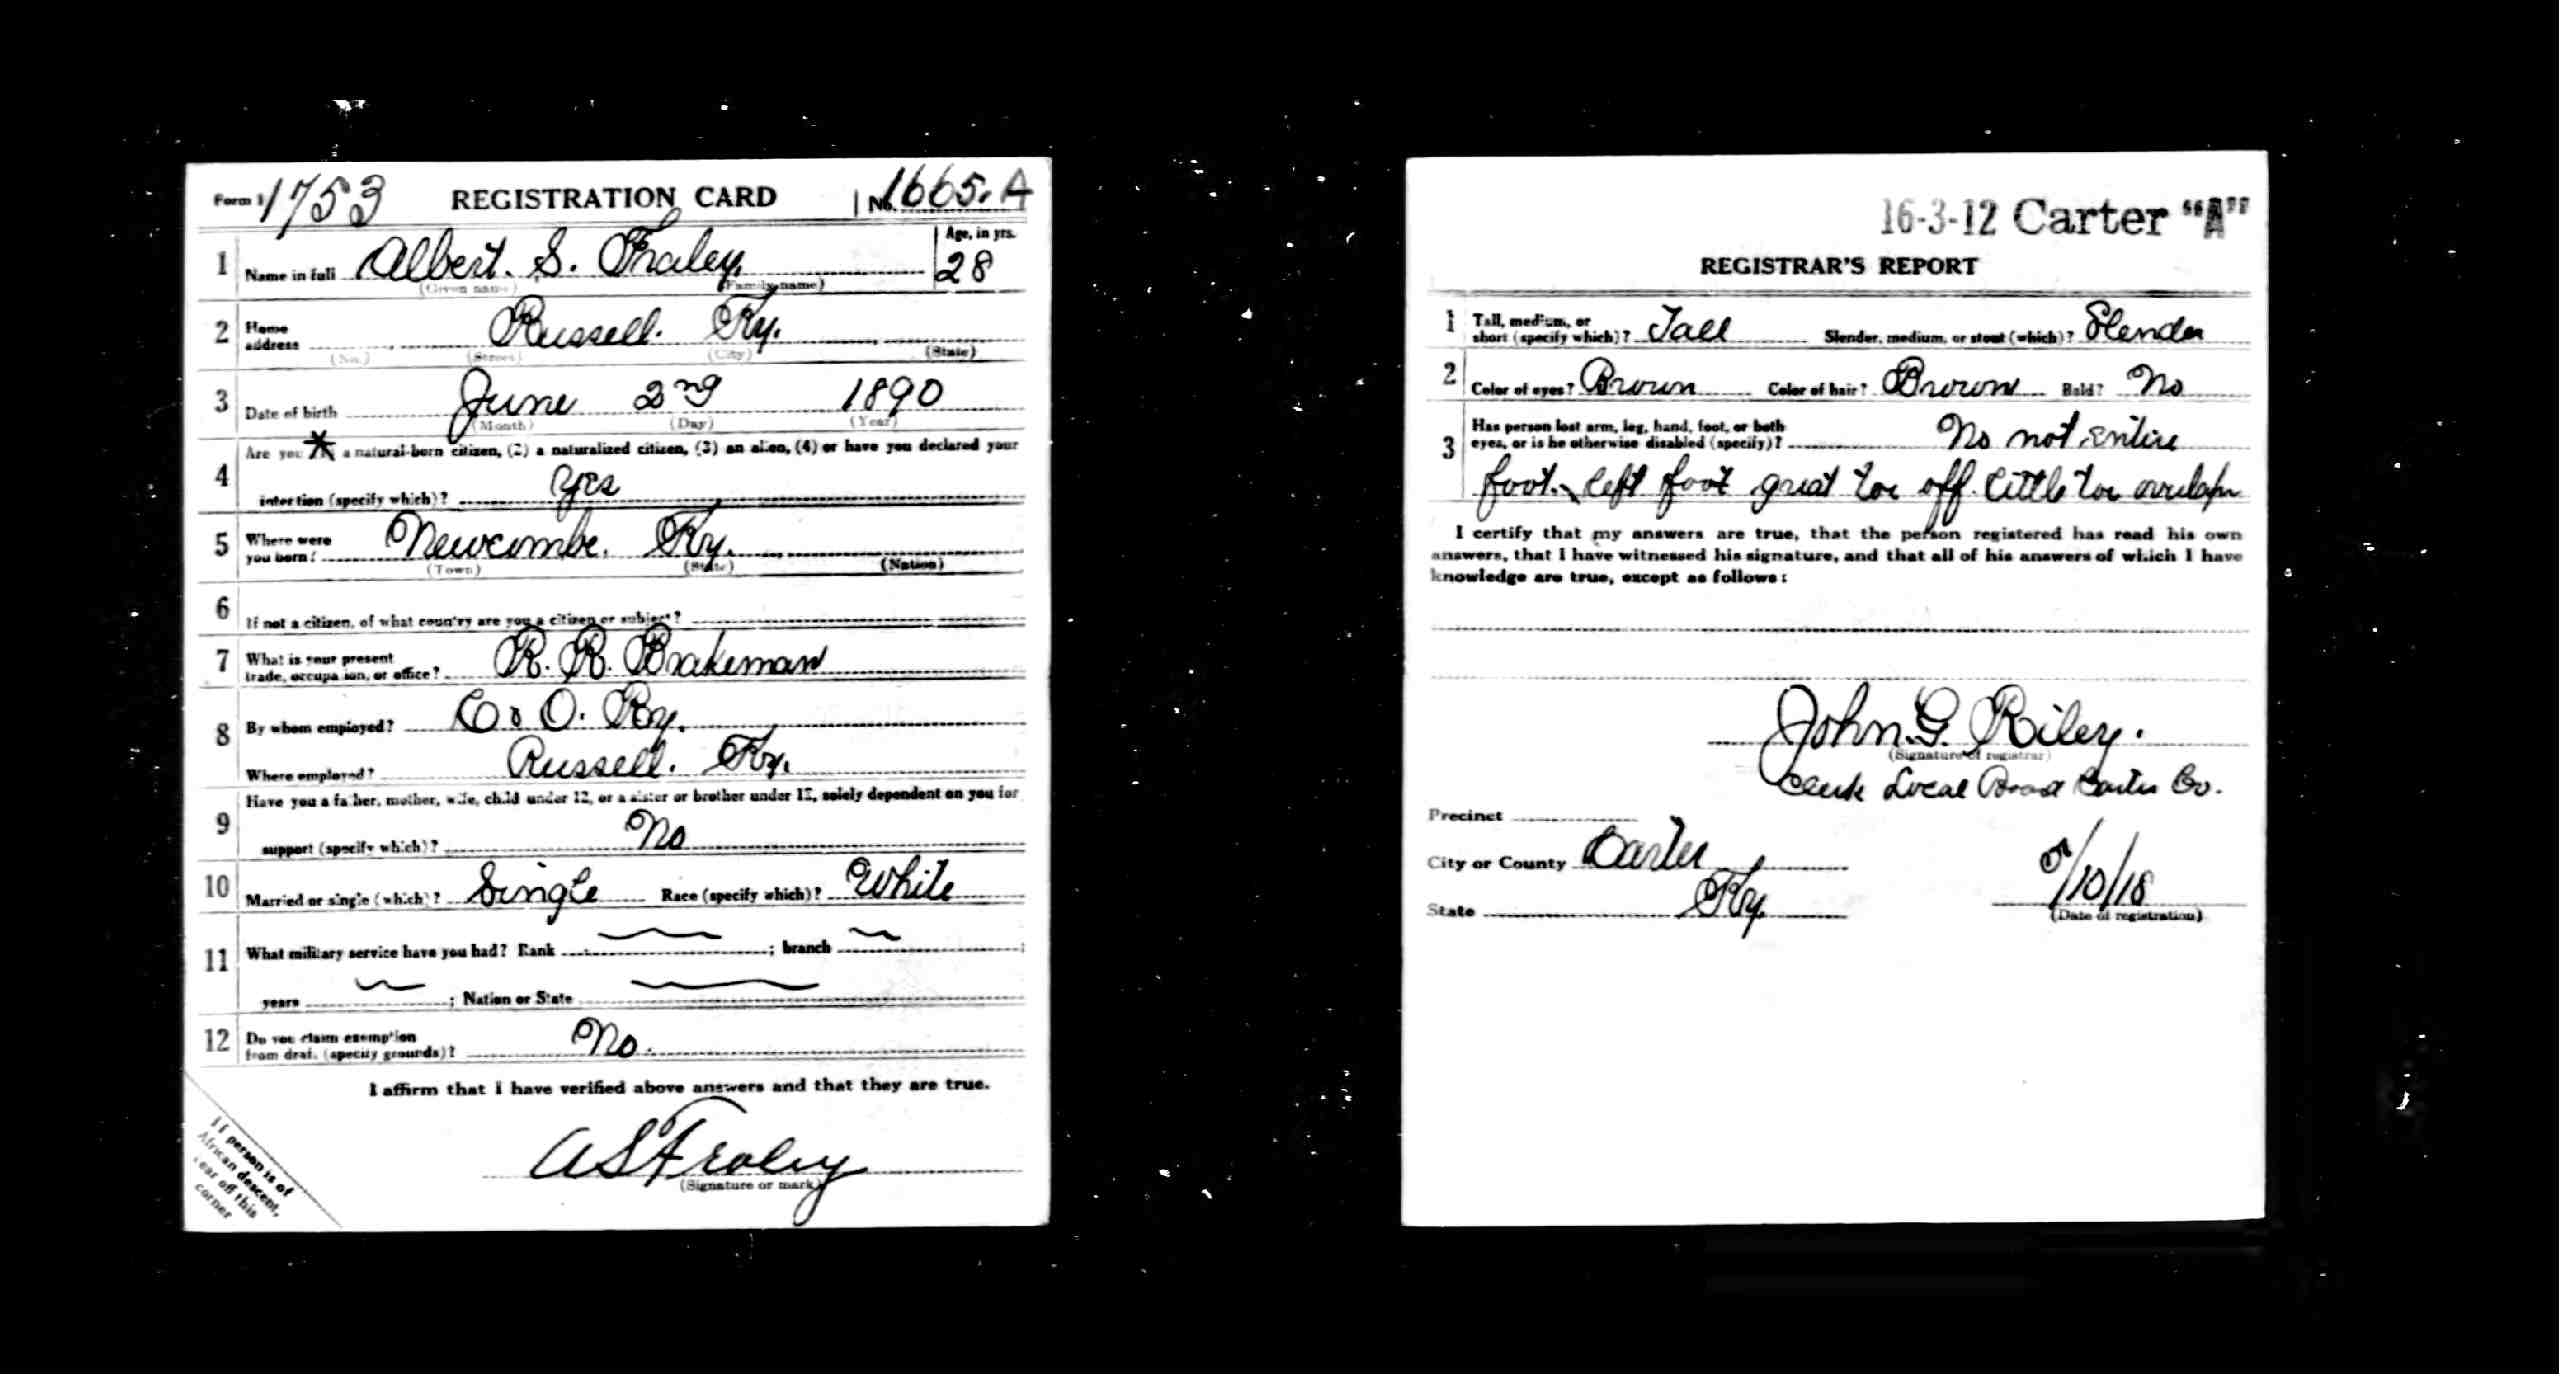 Form 1 1753 REGISTRATION CARD No. 1665. A
1 Name in full Albert. S. Fraley. Age, in yrs. 28
(Given name) (Family name)
2 Home address Russell. Ky.
(No.) (Street) (City) (State)
3 Date of birth June 2nd 1890
(Month) (Day) (Year)
Are you a natural-born citizen, (2) a naturalized citizen, (3) an alien, (4) or have you declared your
4 intention (specify which)? Yes
5 Where were you born? Newcombe. Ky.
(Town) (State) (Nation)
6 If not a citizen, of what country are you a citizen or subject?
7 What is your present trade, occupation, or office? R. R. Brakeman
8 By whom employed? C & O. Ry.
Where employed? Russell. Ky.
Have you a father, mother, wife, child under 12, or a sister or brother under 12, solely dependent on you for
9 support (specify which)? No
10 Married or single (which)? Single Race (specify which)? White
11 What military service have you had? Rank ; branch ;
years ; Nation or State
12 Do you claim exemption from draft (specify grounds)? No.
I affirm that I have verified above answers and that they are true.
A S Fraley
(Signature or mark)
If person is of
African descent,
tear off this
corner
16-3-12 Carter "A"
REGISTRAR'S REPORT
1 Tall, medium, or short (specify which)? Tall Slender, medium, or stout (which)? Slender
2 Color of eyes? Brown Color of hair? Brown Bald? No
3 Has person lost arm, leg, hand, foot, or both eyes, or is he otherwise disabled (specify)? No not entire
foot. left foot great toe off. little toe overlaps
I certify that my answers are true, that the person registered has read his own
answers, that I have witnessed his signature, and that all of his answers of which I have
knowledge are true, except as follows:
John. G. Riley.
(Signature of registrar)
Clerk Local Board Carter Co.
Precinct
City or County Carter
State Ky. /10/18
(Date of registration)